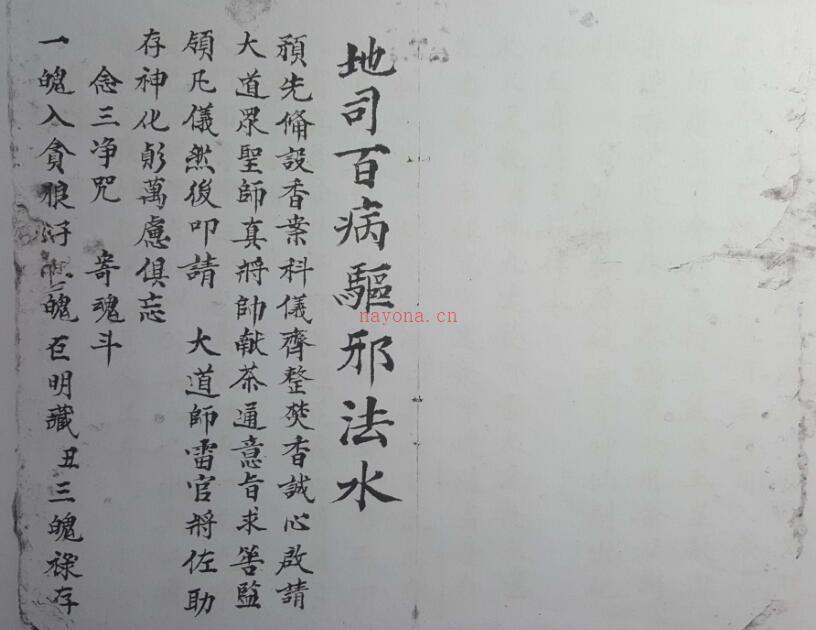 地司百病驅邪法水
預先俻設香案科儀齊整焚香誠心啟請
大道眾聖師真將帥献茶通意旨求善監
領凡儀然後叩請　大道師雷官將佐助
存神化䰟萬慮俱忘
念三净咒　寄魂斗
一魄入貪狼 魄巨明藏丑三魄禄存
nayona.cn